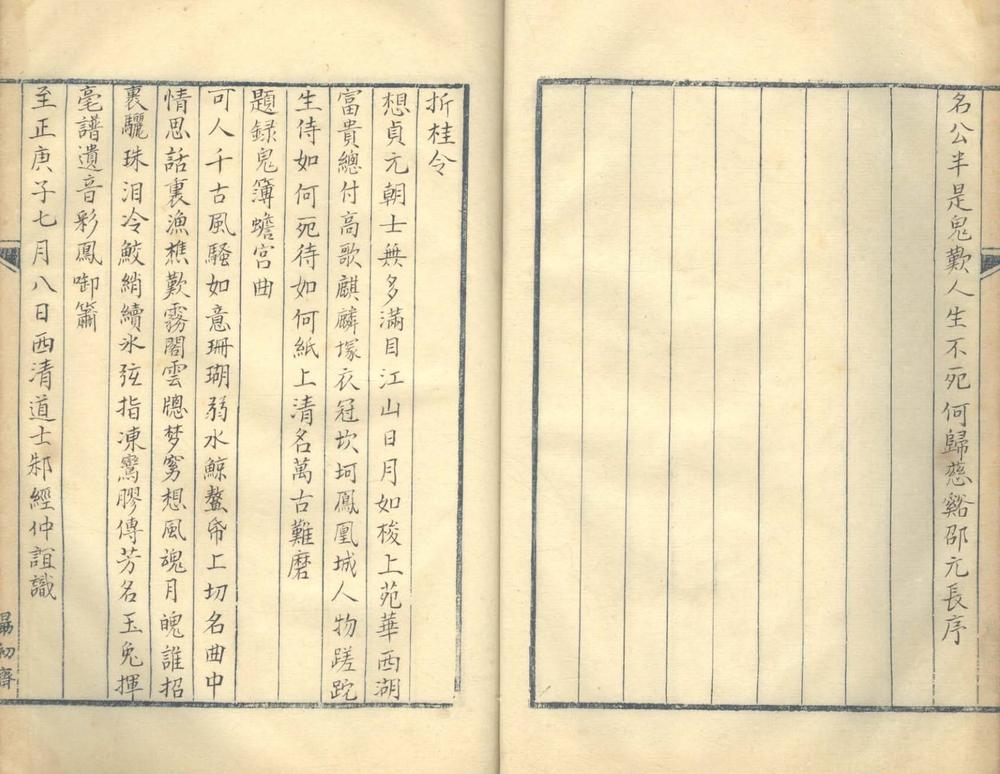 名公半是鬼歎人生不死何歸慈谿邵元長序
折桂令
想貞元朝士無多滿目江山日月如梭上苑華西湖
富貴總付高歌麒麟塚衣冠坎坷鳳凰城人物蹉跎
生待如何死待如何紙上清名萬古難磨
題録鬼簿蟾宮曲
可人千古風騷如意珊瑚弱水鯨鰲帋上切名曲中
情思話裏漁樵歎霧閣雲牕梦窅想風魂月魄誰招
裏驪珠泪冷鮫綃續氷弦指凍鸞膠傳芳名玉兔揮
毫譜遺音彩鳳啣簫
至正庚子七月八日西清道士邾經仲誼識